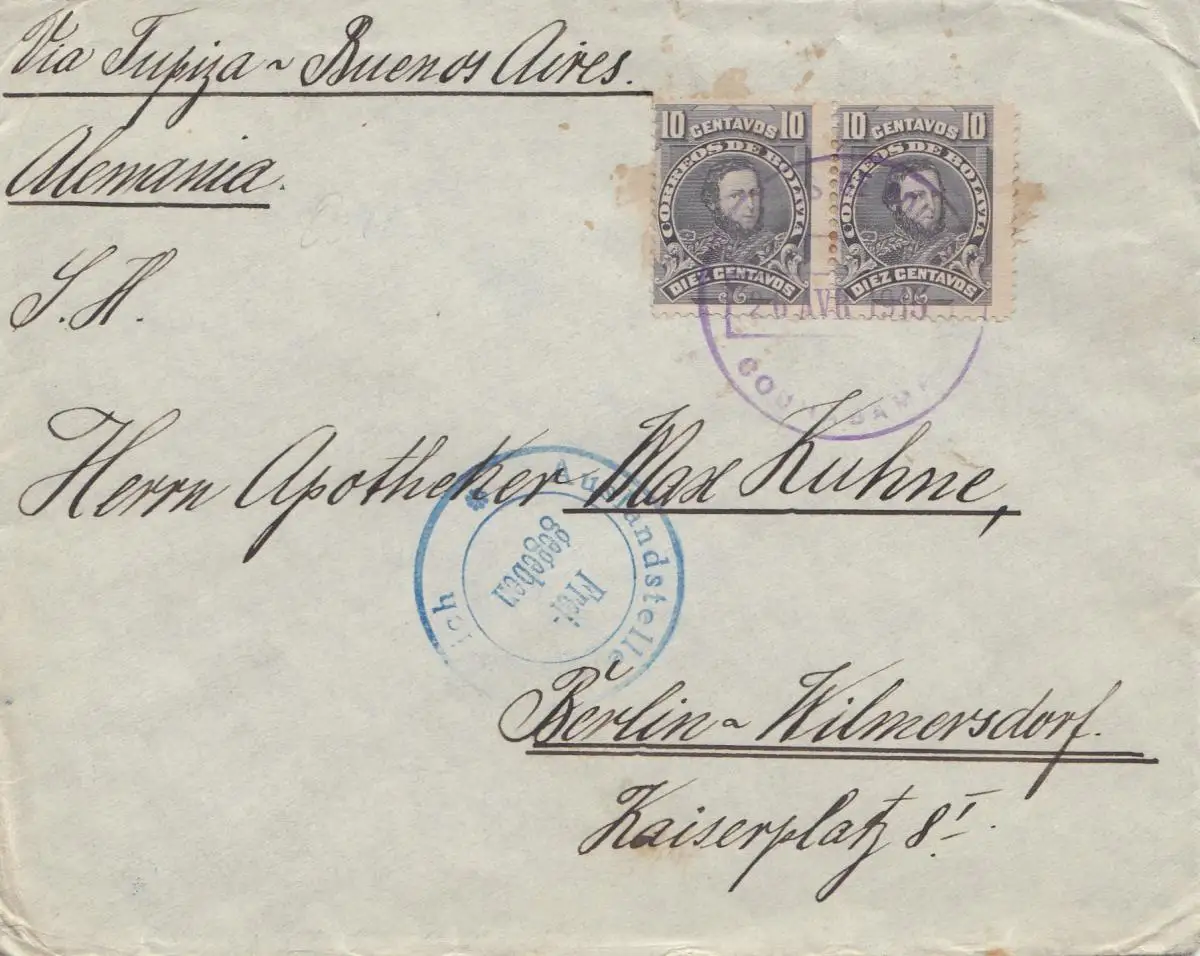 Via Tupiza ~ Buenos Aires.
Alemania.
S. H.
10 CENTAVOS 10
CORREOS DE BOLIVIA
DIEZ CENTAVOS
10 CENTAVOS 10
CORREOS DE BOLIVIA
DIEZ CENTAVOS
Herrn Apotheker Max Kuhne,
Auslandstelle
Frei-
gegeben
Berlin ~ Wilmersdorf.
Kaiserplatz 8 I.